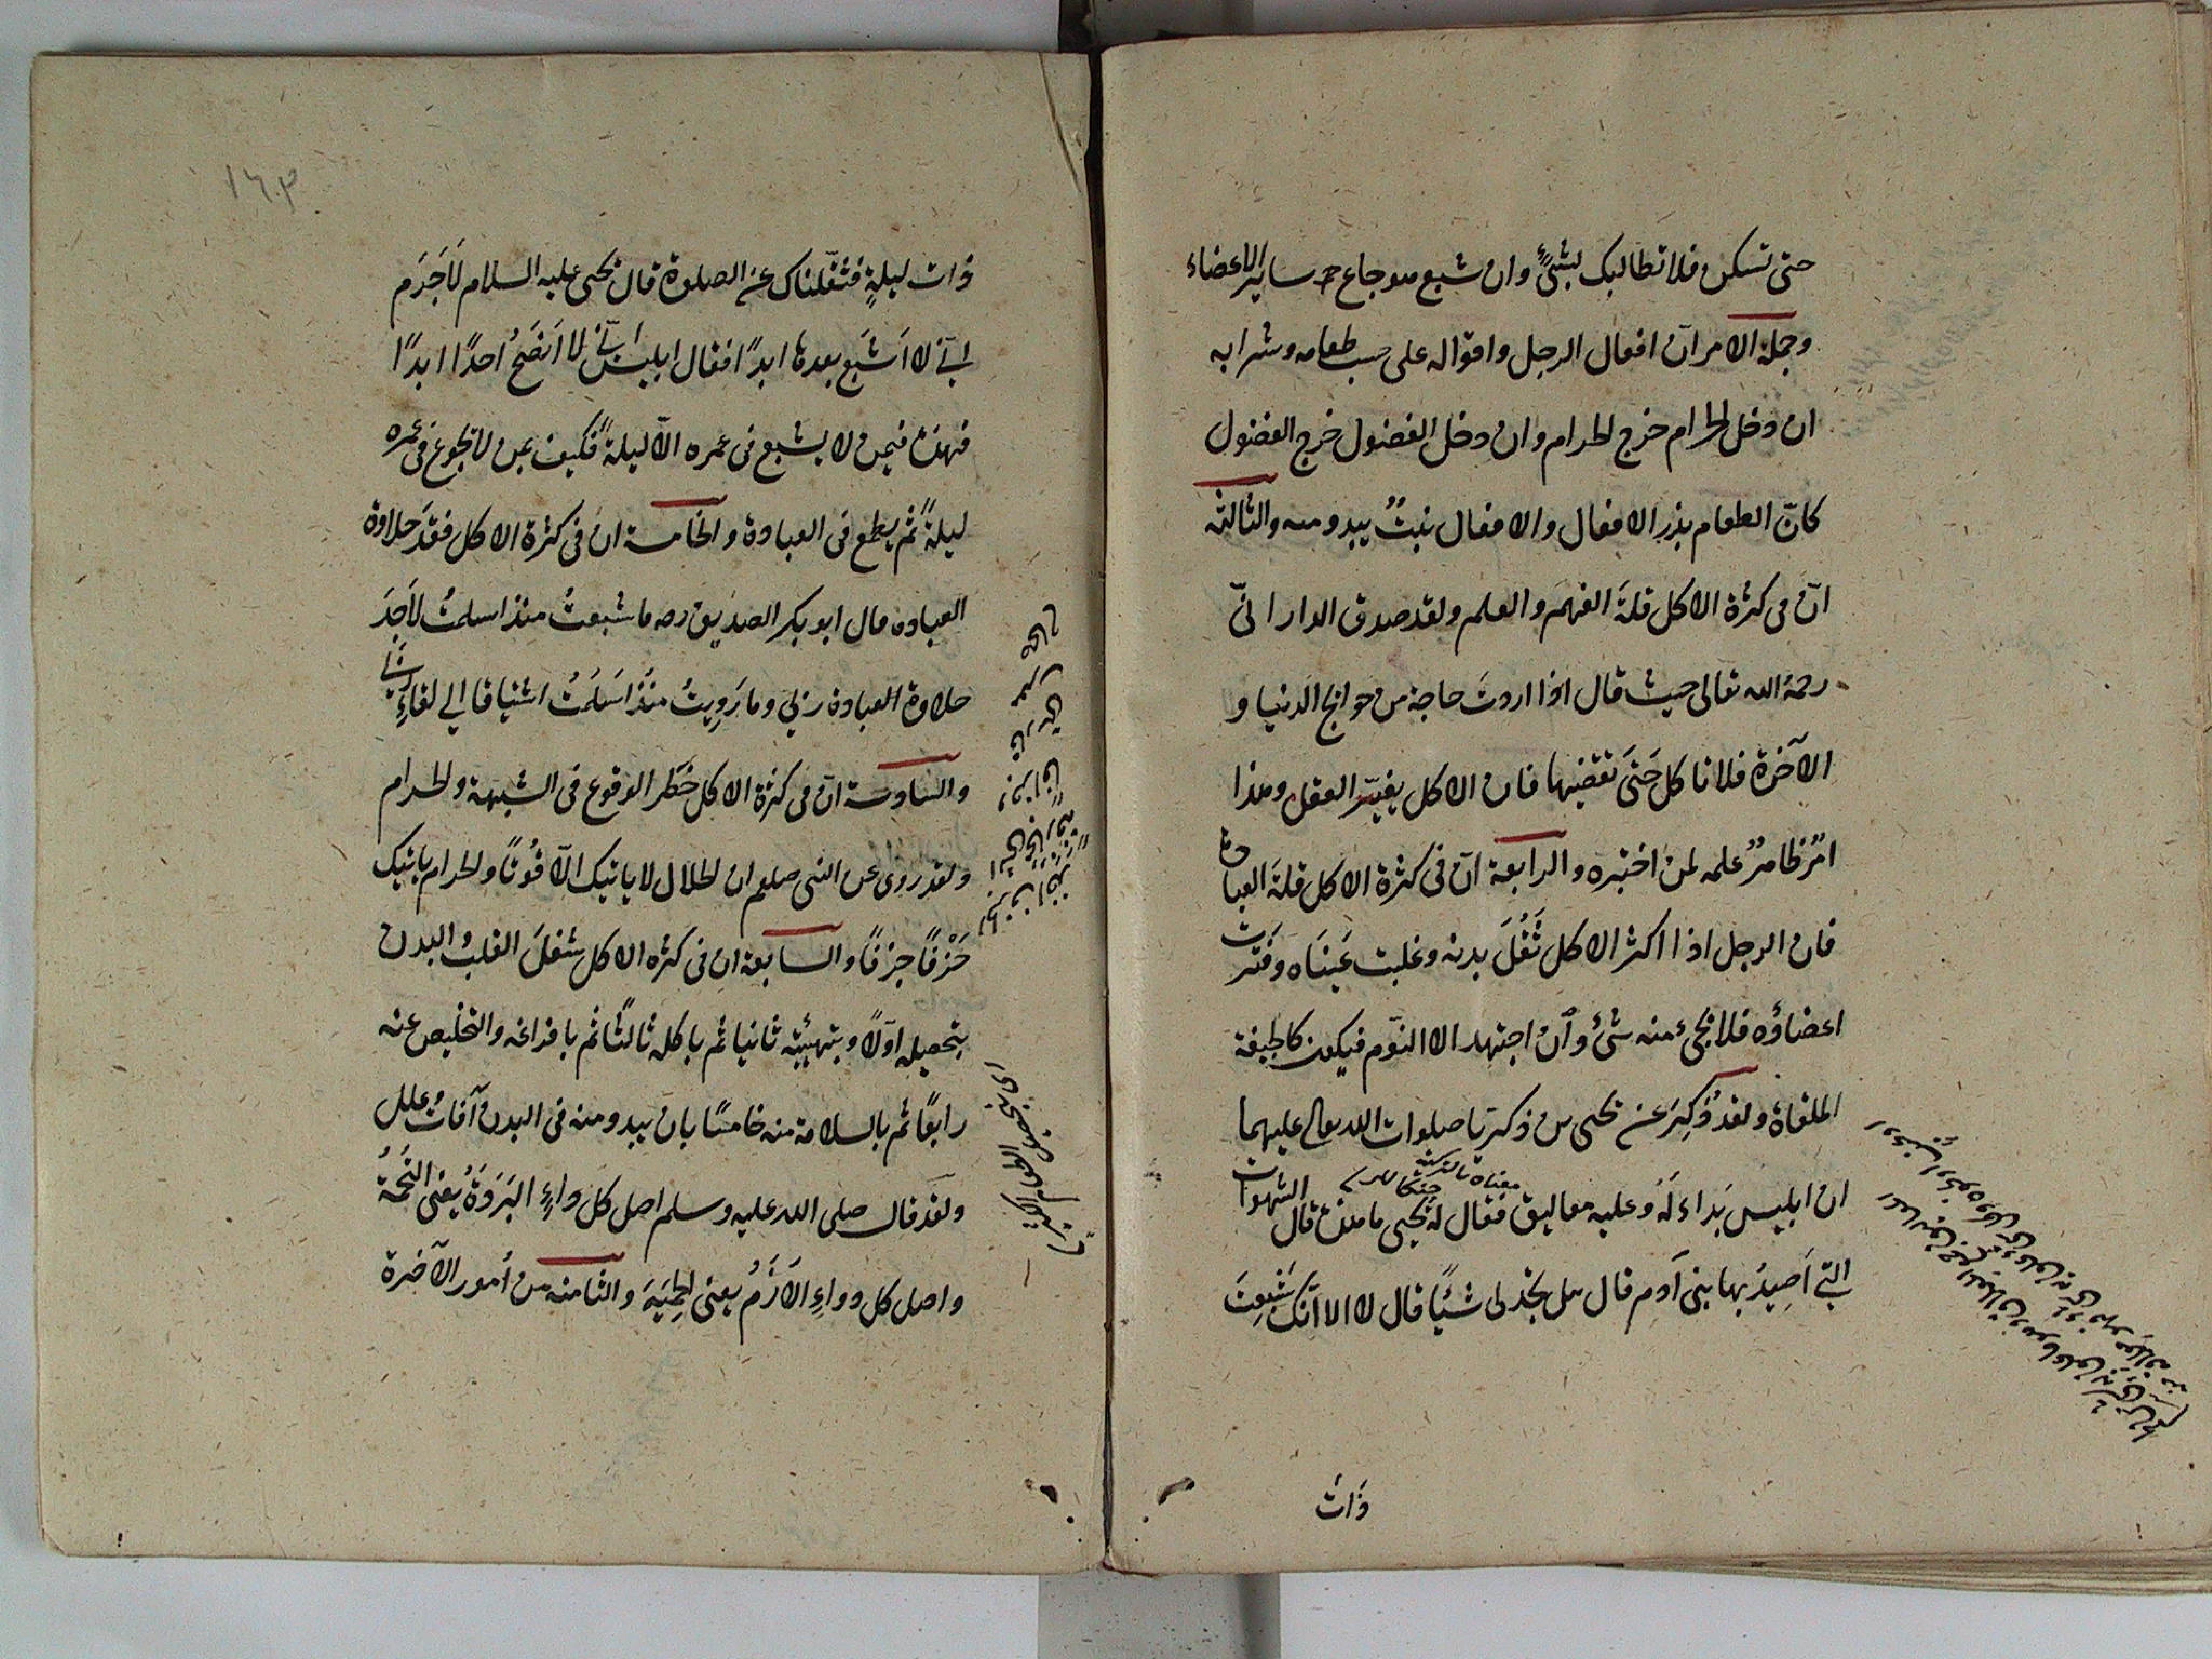 حتى تسكن فلا تطالبك بشئٍ وان شبع هو جاع سائر الاعضاء
وجملة الامر انّ افعال الرجل واقواله على حسب طعامه وشرابه
ان دخل الحرام خرج الحرام وان دخل الفضول خرج الفضول
كانّ الطعام بذر الافعال والافعال نبتٌ يبدو منه والثالثة
انّ فى كثرة الاكل قلةَ الفهم والعلم ولقد صدق الدارانىّ
رحمة الله تعالى حيث قال اذا اردتَ حاجة من حوائج الدنيا و
الآخرة فلا تاكل حَتىَ تقضيها فان الاكل يغيّر العقل وهذا
امرٌ ظاهرٌ علمه لمن اختبره والرابعة انّ فى كثرة الاكل قلةَ العبادة
فان الرجل اذا اكثر الاكل ثَقُلَ بدنه وغلبت عَينَاه وفَترت
اعضاؤه فلا يجئ منه شئ وَاِن اجتهد الا النوّم فيكون كالجيفة
الملقاة ولقد ذُكِرَ عن يحيى بن زكريّا صلوات الله تعالى عليهما
معناه بالتركية
ان ابليس بَداء لَهُ وعليه معاليق فقال له يحيى ما هذه قال الشهوات
التي اَصِيدُ بها بنى آدم قال هل تجد لى شيئًا قال لا الا انّك شَبِعتَ
ذَاتَ
١٦٠٣
ذات ليلةٍ فثقّلناك عن الصلوة قال يحيى عليه السلام لاَجَرَم
اِنّي لا اَشبَع بعدها ابدًا فقال ابليس اِنّي لا اَنصَحُ احدًا ابدًا
فهذه فيمن لا يشبع فى عمره الاّ ليلةً فكيف بمن لا يجوع فى عمره
ليلةً ثم يطمع فى العبادة والخامسة ان فى كثرة الاكل فقدَ حلاوة
العبادة قال ابو بكر الصديق رضه ما شبعتُ منذ اسلمتُ لاَجِدَ
حلاوة العبادة ربّي وما رَوِيتُ منذُ اَسلَمتُ اشتياقا الي لقاءِ ربّي
والسادسة انّ فى كثرة الاكل خَطَر الوقوع فى الشبهة والحرام
ولقد روى عن النبى صلعم ان الحلال لا ياتيك الاّ قُوتًا والحرام ياتيك
جَزفًا جزفًا والسابعة ان فى كثره الاكل شغلَ القلب والبدن
بتحصيله اوّلاً وبتهيئته ثانيا ثم باكله ثالثًا ثم بافراغه والتخليص عنه
رابعًا ثم بالسلامة منه خامسًا بان يبدو منه فى البدن آفات وعلل
ولقد قال صلى الله عليه وسلم اصل كل داءٍ البَرَدَةُ يعنى التُخَمَةُ
واصل كل دواءِ الاَزْمُ يعنى الحِميَةَ والثامنه من اُمور الآخرة